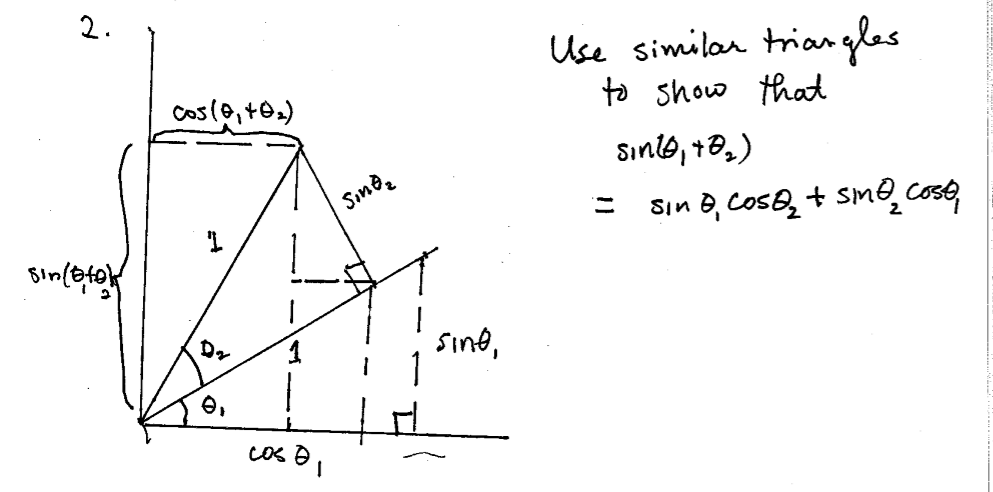 2.
Use similar triangles
to show that
sin(θ₁+θ₂)
= sin θ₁ cosθ₂ + sinθ₂ cosθ₁
cos(θ₁+θ₂)
sinθ₂
1
sin(θ₁+θ₂)
θ₂
1
sinθ₁
θ₁
cos θ₁